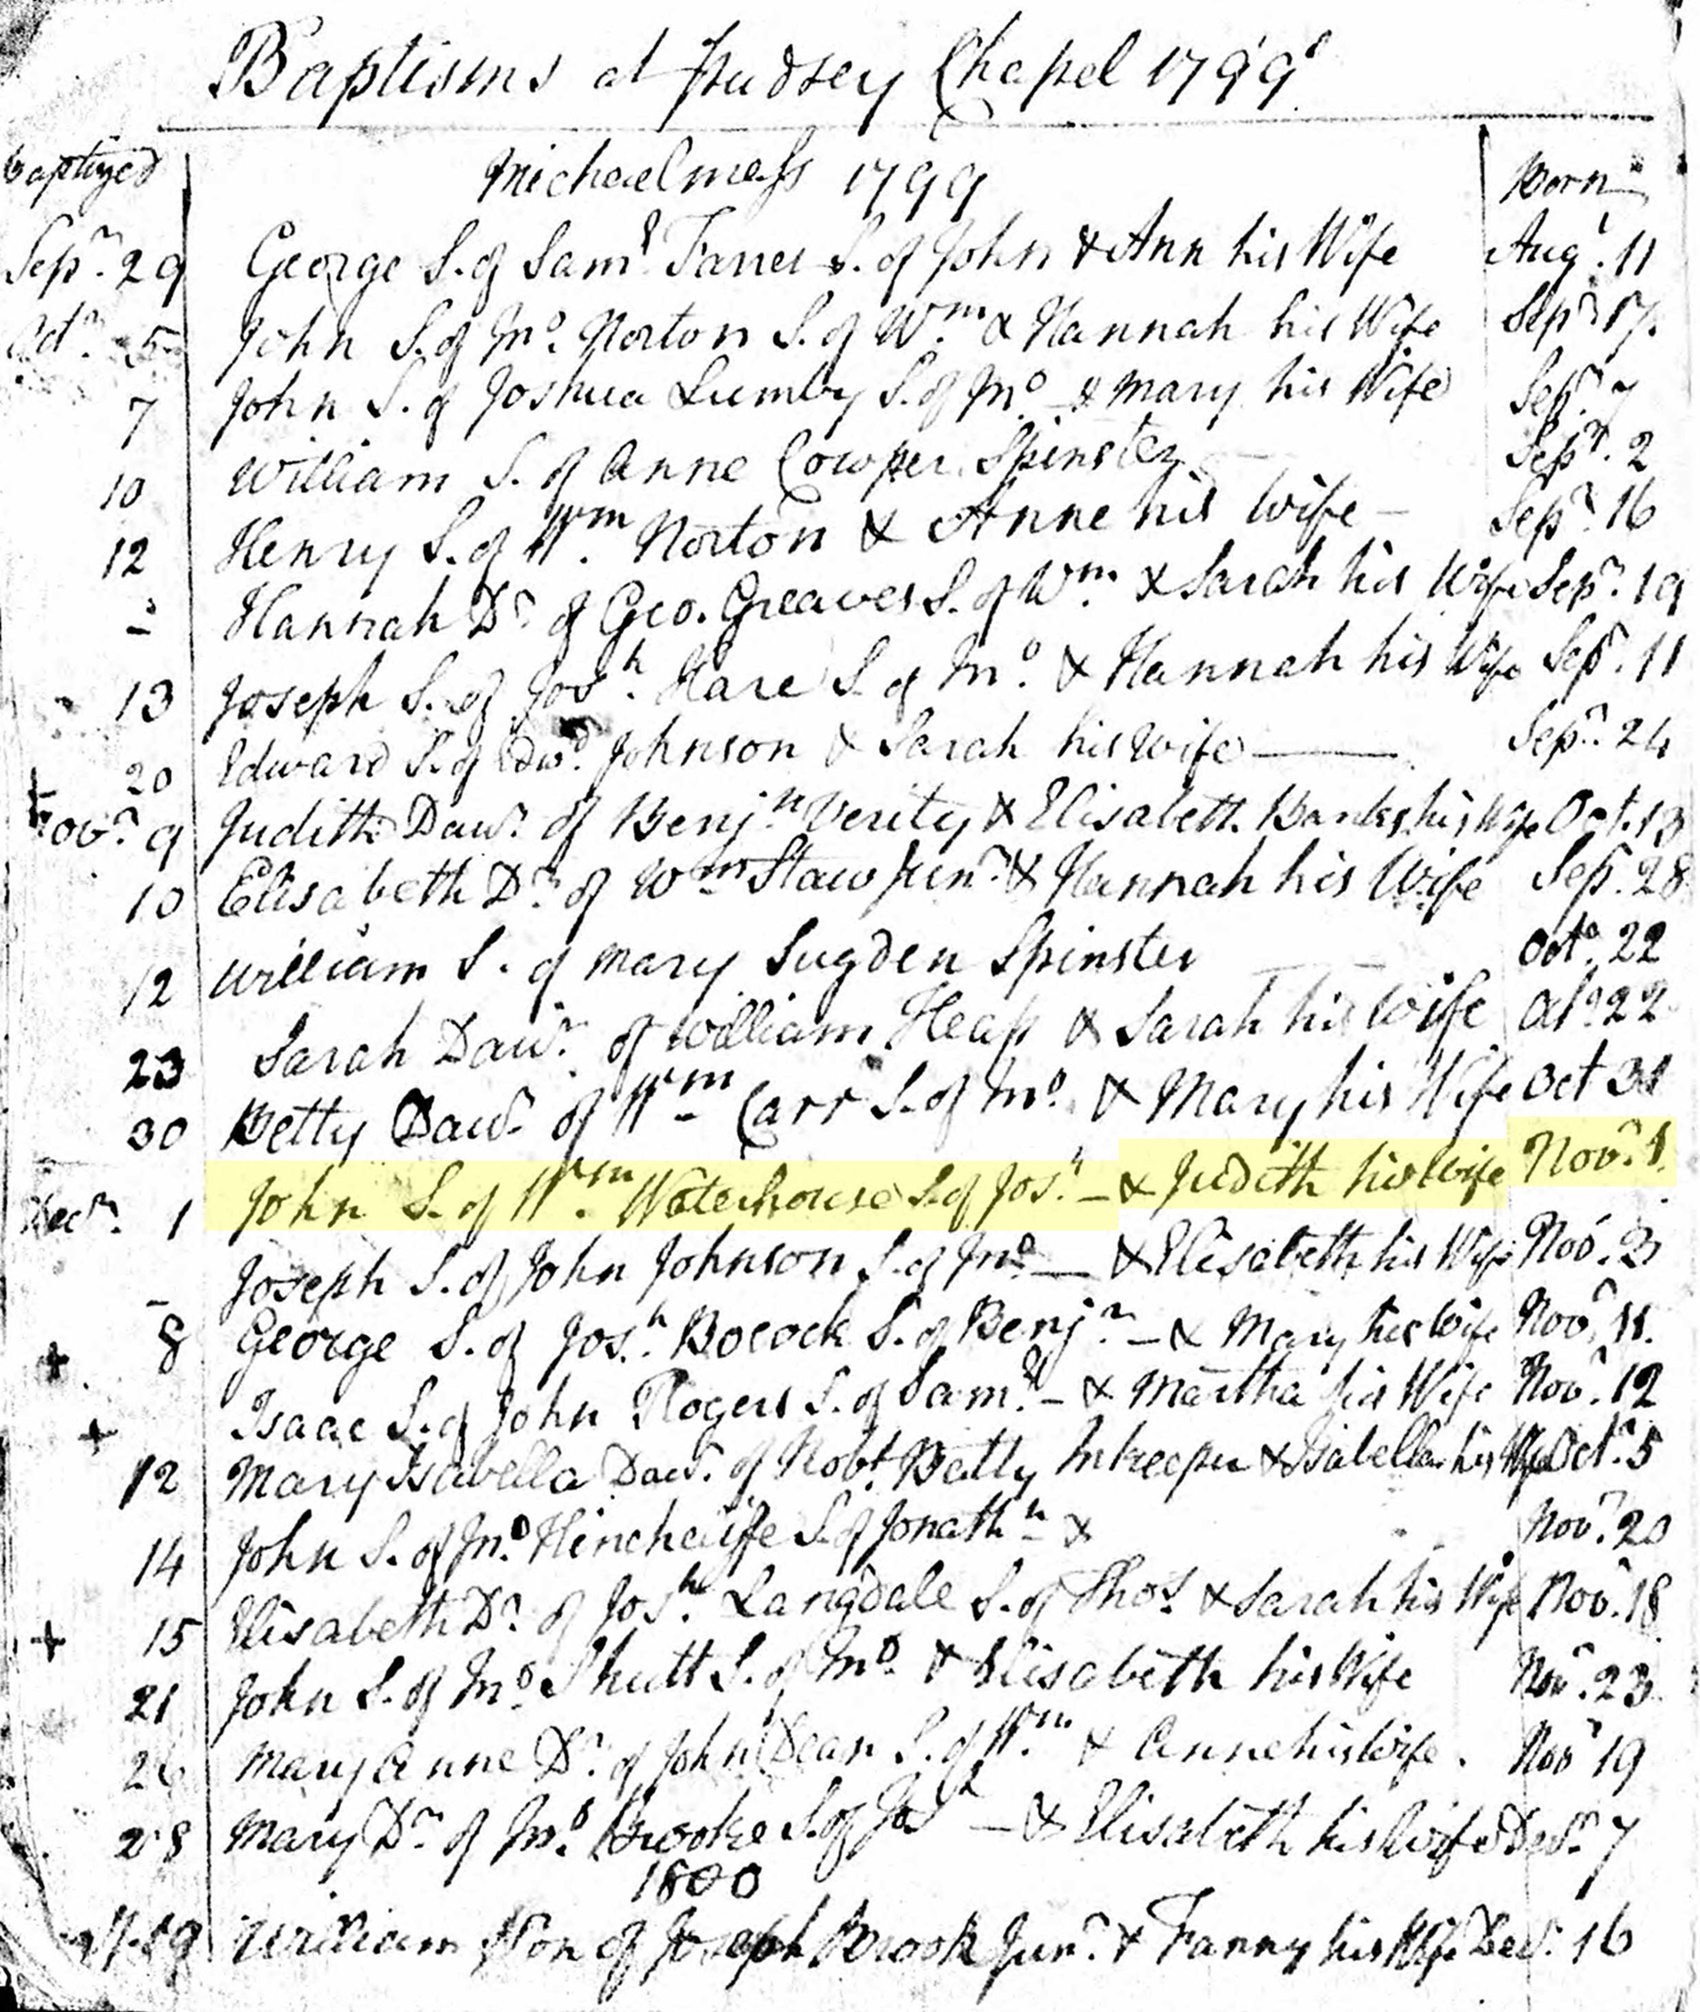 Baptisms at Pudsey Chapel 1799
Baptized Michaelmass 1799 Born
Sepr. 29 George S. of Saml. Farrer S. of John & Ann his Wife Augt. 11
Octr. 5 John S. of Jno. Norton S. of Wm. & Hannah his Wife Sepr. 17.
7 John S. of Joshua Lumby S. of Jno. & Mary his Wife Sepr. 7
10 William S. of Anne Cowper Spinster Sepr. 2
12 Henry S. of Wm. Norton & Anne his Wife – Sepr. 16
– Hannah Dr. of Geo. Greaves S. of Wm. & Sarah his Wife Sepr. 19
13 Joseph S. of Josh. Hare S. of Jno. & Hannah his Wife Sepr. 11
20 Edward S. of Edwd. Johnson & Sarah his Wife — Sepr. 24
+ Novr. 9 Judith Dawr. of Benjn. Verity & Elisabeth Banks his Wife Oct. 13
10 Elisabeth Dr. of Wm Staw Junr. & Hannah his Wife Sep. 28
12 William S. of Mary Sugden Spinster Octo. 22
23 Sarah Dawr. of William Heap & Sarah his Wife Octo. 22
30 Betty Dawr. of Wm Carr S. of Jno. & Mary his Wife Oct 31
Decr. 1 John S. of Wm. Waterhouse S. of Josh. – & Judith his Wife Novr. 1.
– Joseph S. of John Johnson S. of Jno. — & Elisabeth his Wife Nov. 3
+ 8 George S. of Josh. Bocock S. of Benjn. – & Mary his Wife Novr. 11.
+ Isaac S. of John Rogers S. of Saml. – & Martha his Wife Novr. 12
12 Mary Isabella Dawr. of Robt. Batty Inkeeper & Isabella his Wife Octr. 5
14 John S. of Jno. Hinchcliffe S. of Jonathn. & Novr. 20
+ 15 Elisabeth Dr. of Josh. Langdale S. of Thos. & Sarah his Wife Novr. 18
21 John S. of Jno. Shutt S. of Jno. & Elisabeth his Wife Novr. 23
26 Mary Anne Dr. of John Dean S. of Wm. & Anne his Wife. Novr 19
28 Mary Dr. of Jno. Brooke S. of – & Elisabeth his Wife Decr. 7
1800
19 William Son of Joseph Brook Junr. & Fanny his Wife Decr. 16